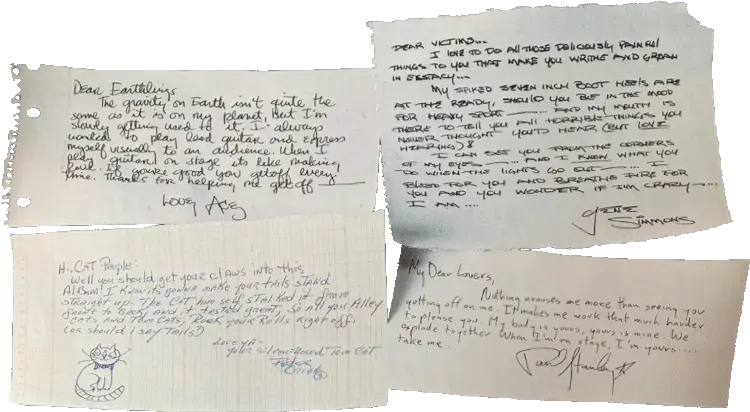 Dear Earthlings
The gravity on Earth isn't quite the
same as it is on my planet, But I'm
slowly getting used to it. I always
wanted to play lead guitar and express
myself visually to an audience. When I
play guitar on stage its like making
love. If you're good you getoff every
time. Thanks for helping me getoff
Love, Ace
DEAR VICTIMS...
I LOVE TO DO ALL THOSE DELICIOUSLY PAINFUL
THINGS TO YOU THAT MAKE YOU WRITHE AND GROAN
IN ECSTACY...
MY SPIKED SEVEN INCH BOOT HEELS ARE
AT THE READY, SHOULD YOU BE IN THE MOOD
FOR HEAVY SPORT ... AND MY MOUTH IS
THERE TO TELL YOU ALL HORRIBLE THINGS YOU
NEVER THOUGHT YOU'D HEAR (BUT LOVE
HEARING)!
I CAN SEE YOU FROM THE CORNERS
OF MY EYES ... AND I KNOW WHAT YOU
DO WHEN THE LIGHTS GO OUT ... I
BLEED FOR YOU AND BREATHE FIRE FOR
YOU AND YOU WONDER IF I'M CRAZY ...
I AM ....
GENE
SIMMONS
Hi, CAT People-
Well you should get your claws into this
Album! I know its gonna make your tails stand
straight up. The Cat him self stalked it from
front to back and it tested great, so all you Alley
Cats and Tom Cats, Rock your Rolls Right off,
(or should i say Tails?)
Love ya-
your silver-nosed Tom Cat
Peter
Criss
My Dear Lovers,
Nothing arouses me more than seeing you
getting off on me. It makes me work that much harder
to please you. My body is yours, yours is mine. We
explode together When I'm on stage, I'm yours....
take me.
Paul Stanley